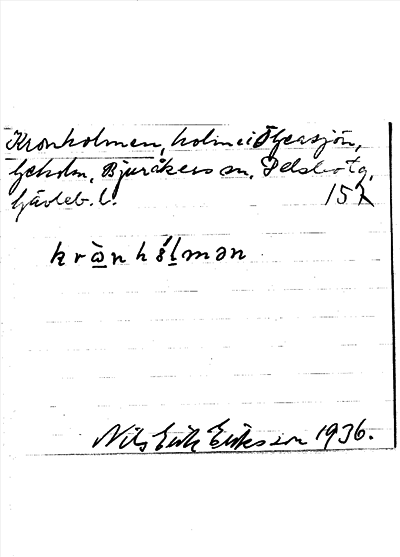 Kronholmen, holme i Öjeasjön,
Bjuråkers sn,
Gävleb. l. 157
krὼnhólmən
Nils Erik Eriksson 1936.